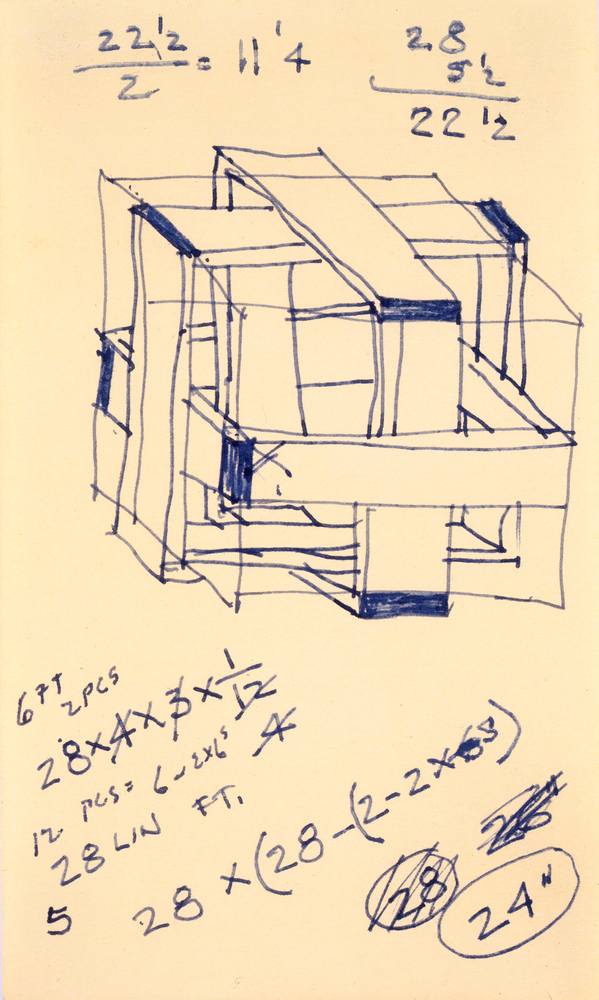 22 1/2 / 2 = 11 1/4
28
5 1/2
22 1/2
6 FT 2 PCS
28 x 4 x 3 x 1/12
4
12 PCS = 6 - 2x6s
28 LIN FT.
5
28 x (28 - (2 - 2 x 6s)
28
24"